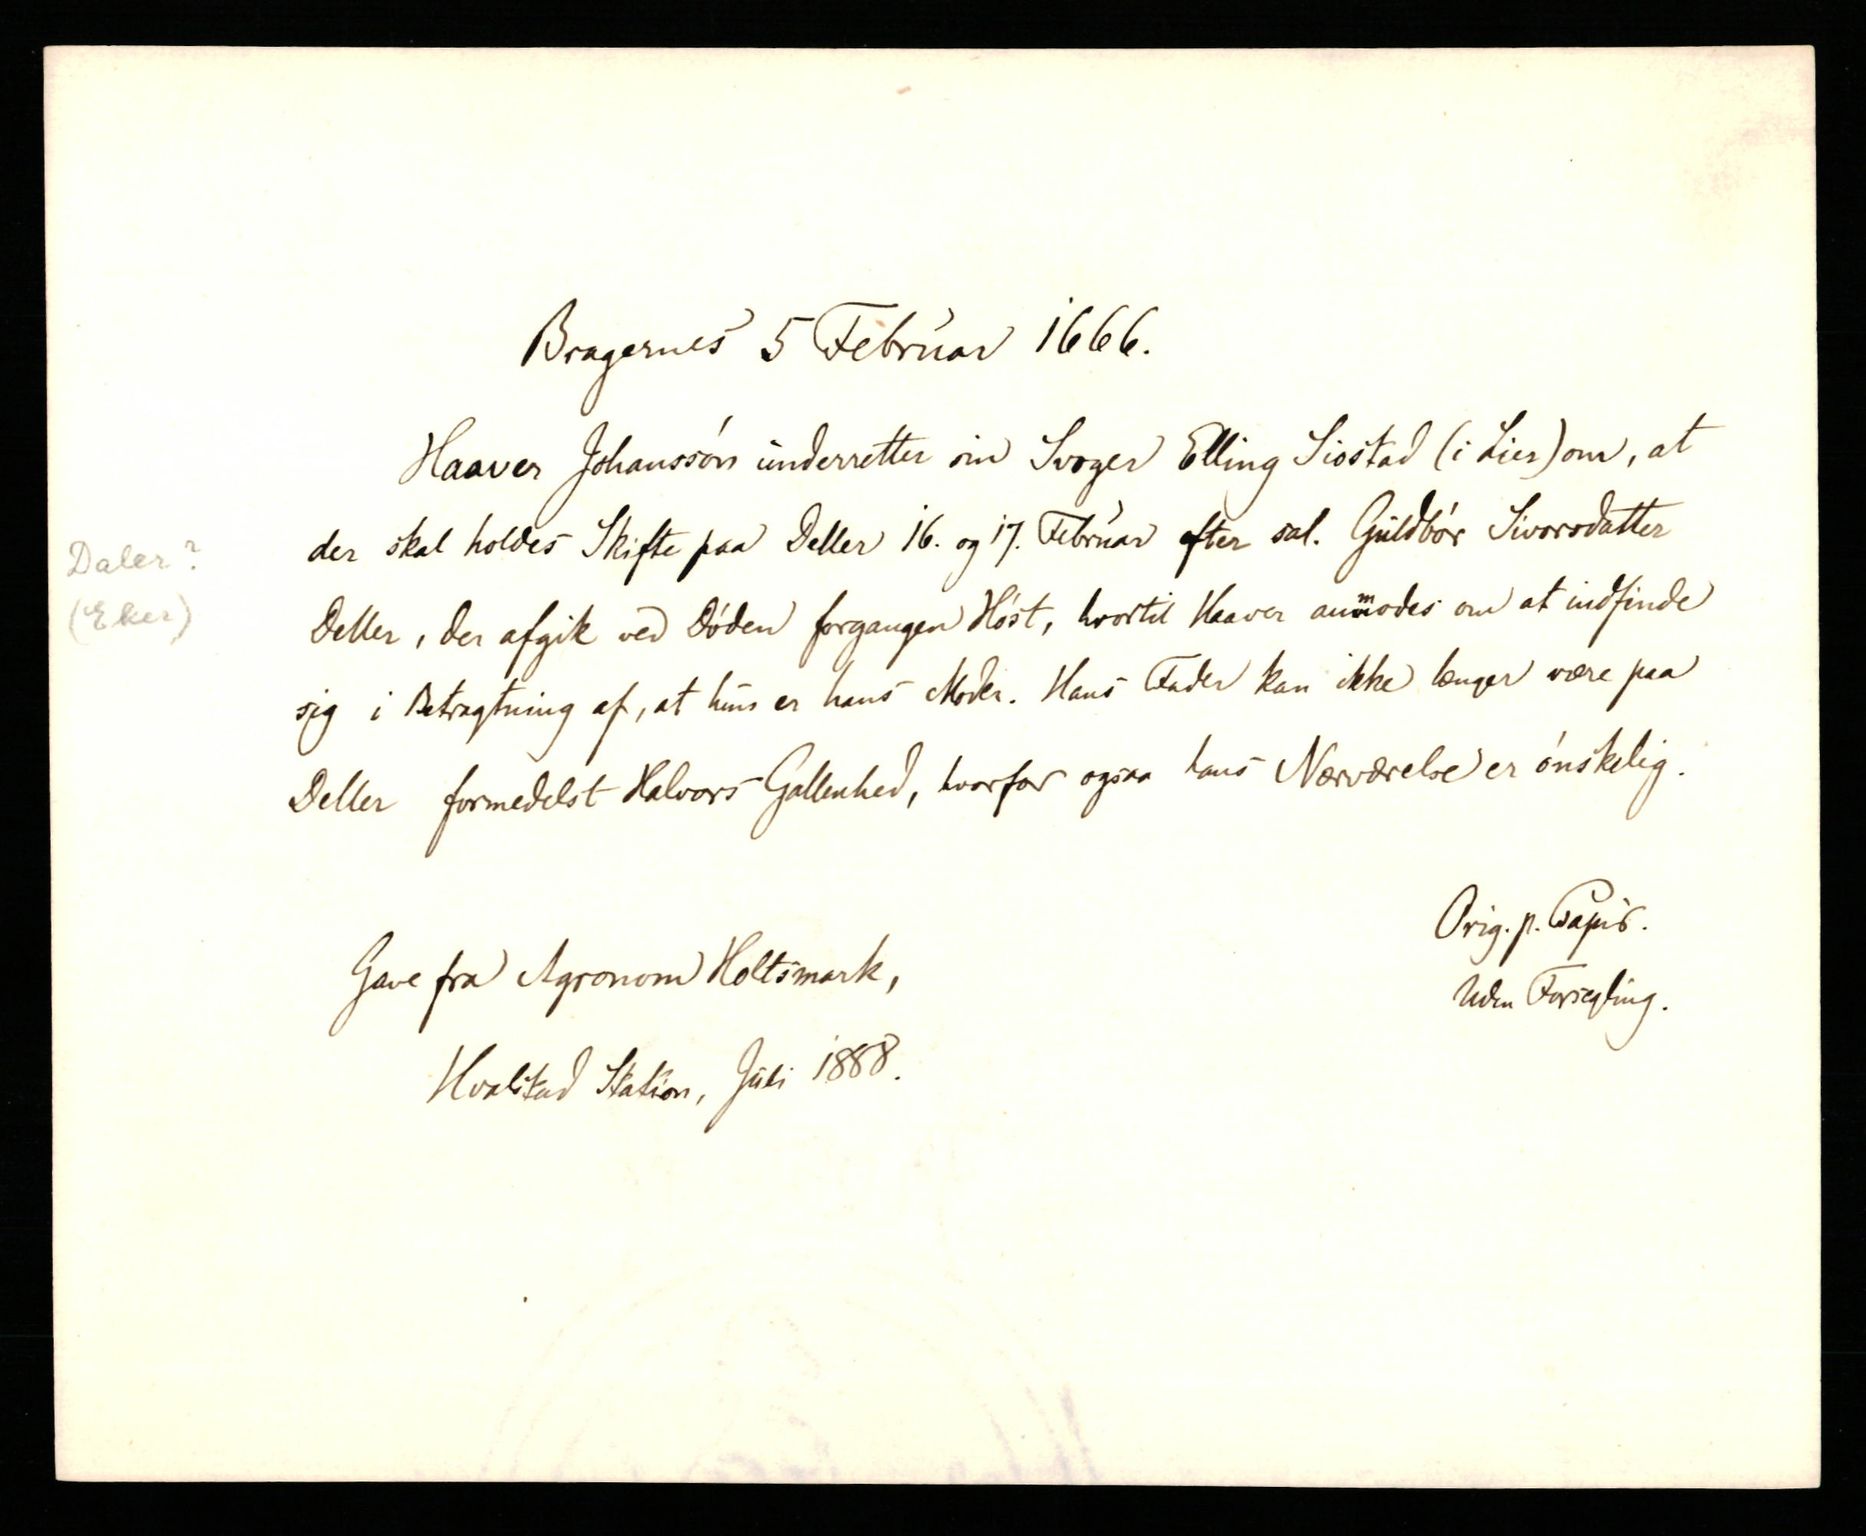 Bragernes 5 Februar 1666.
Haaver Johanssøn underretter sin Svoger Elling Siøstad (i Lier) om, at
der skal holdes Skifte paa Deller 16. og 17. Februar efter sal. Guldbør Sivorsdatter
Daler?
(Eker)
Deller, der afgik ved Døden forgangen Høst, hvortil Haaver anmodes om at indfinde
sig i Betragtning af, at hun er hans Moder. Hans Fader kan ikke længer være paa
Deller formedelst Halvors Gallenhed, hvorfor ogsaa hans Nærværelse er ønskelig.
Orig. p. Papir.
Uden Forsegling.
Gave fra Agronom Holtsmark,
Hvalstad Station, Juli 1888.